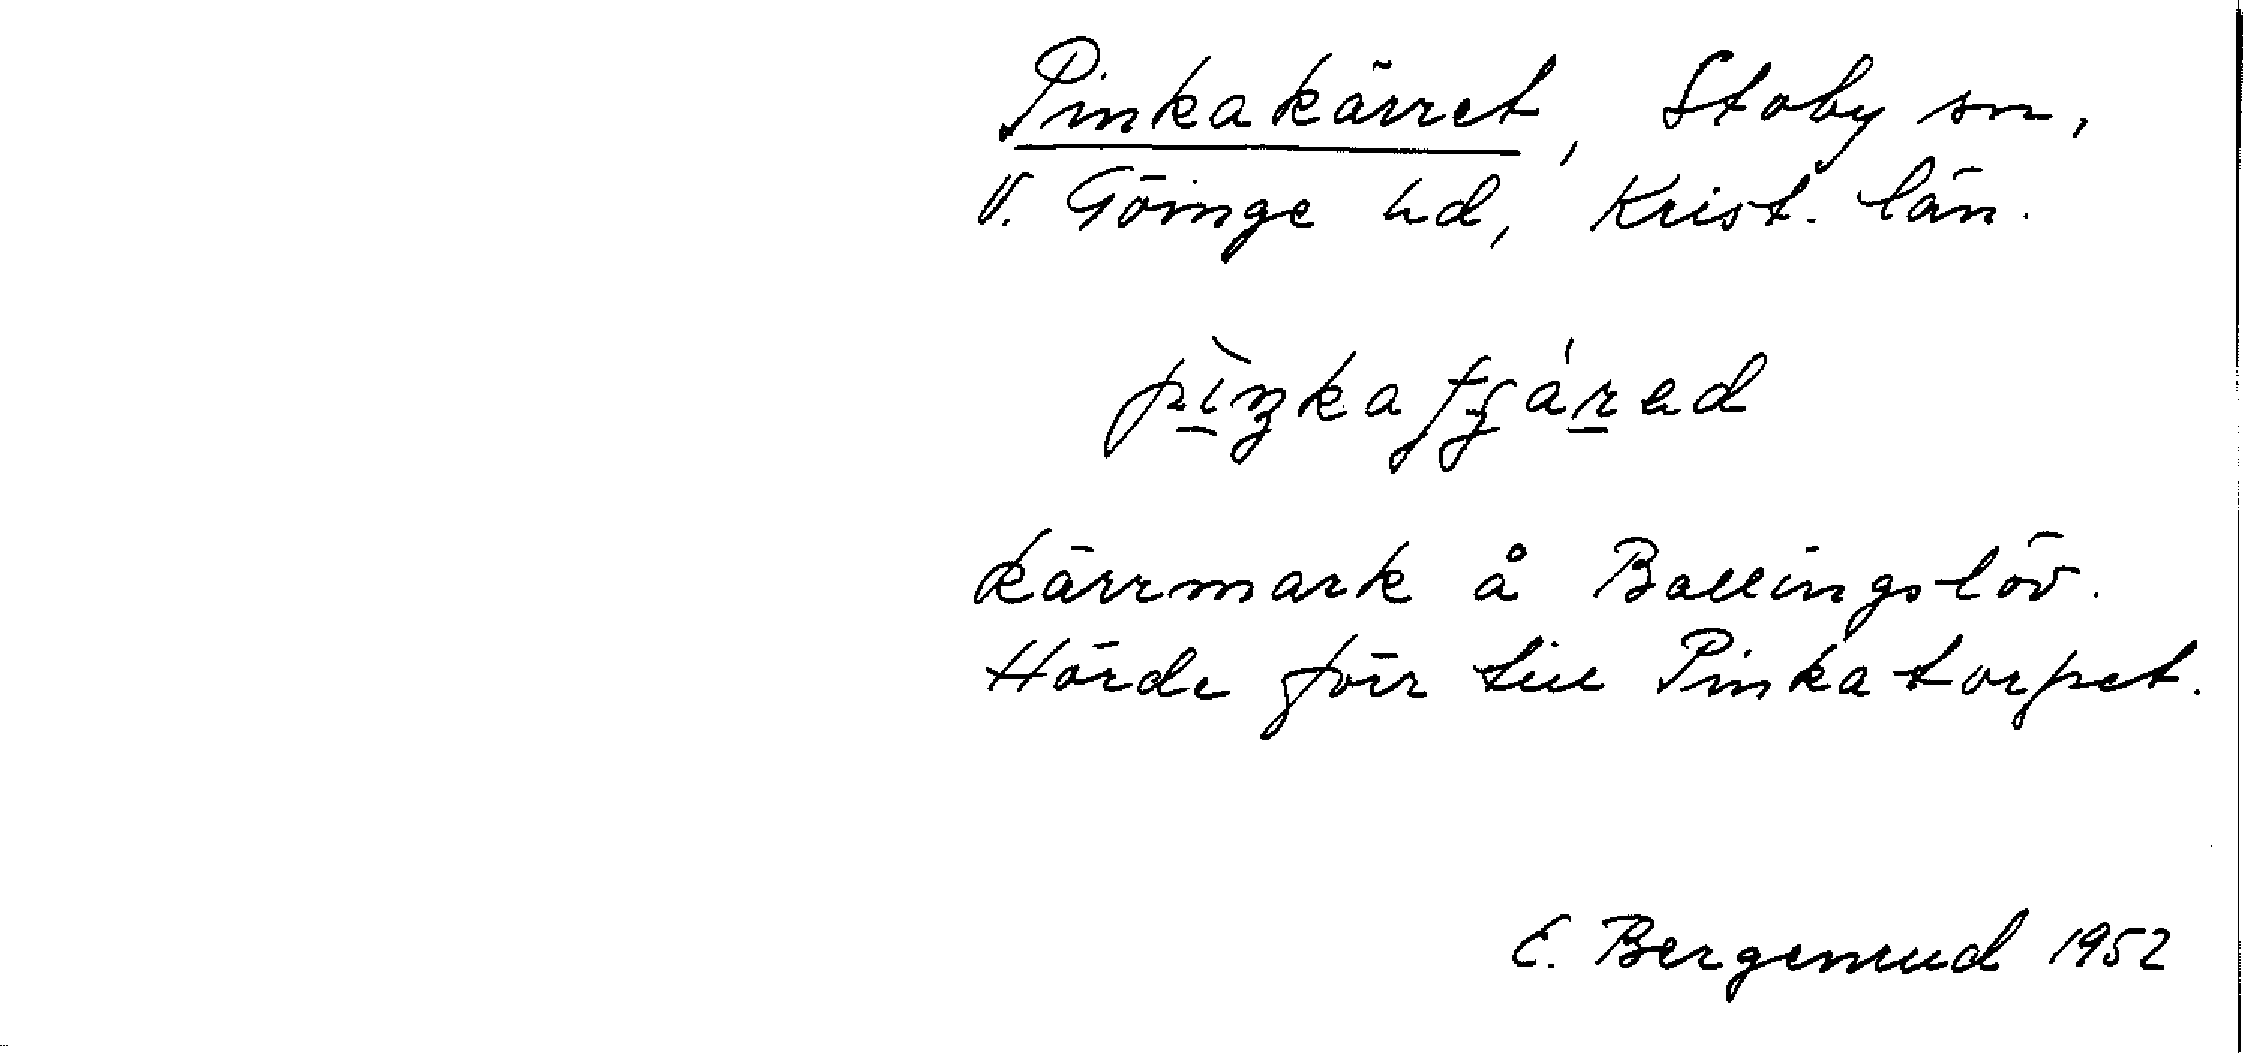 Pinkakärret, Stoby sn,
V. Göinge hd, Krist. län.
pìŋkaʃɟárad
kärrmark å Ballingslöv.
Hörde förr till Pinkatorpet.
E. Bergemrud 1952